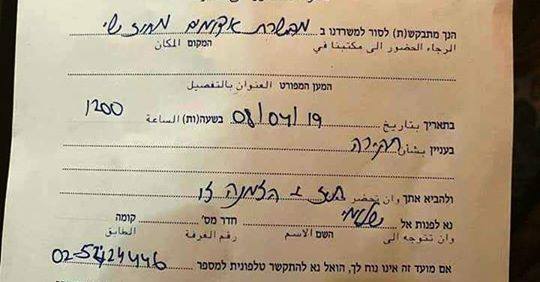 הנך מתבקש(ת) לסור למשרדנו ב
الرجاء الحضور الى مكتبنا في המקום المكان
המען המפורט العنوان بالتفصيل
בתאריך بتاريخ 08/04/19 בשעה(ות) الساعة 1200
בעניין بشأن חקירה
ולהביא אתך وان تحضر ת.ז + הזמנה זו
נא לפנות אל חדר מס' קומה
وان تتوجه الى השם الاسم رقم الغرفة الطابق
אם מועד זה אינו נוח לך, הואל נא להתקשר טלפונית למספר